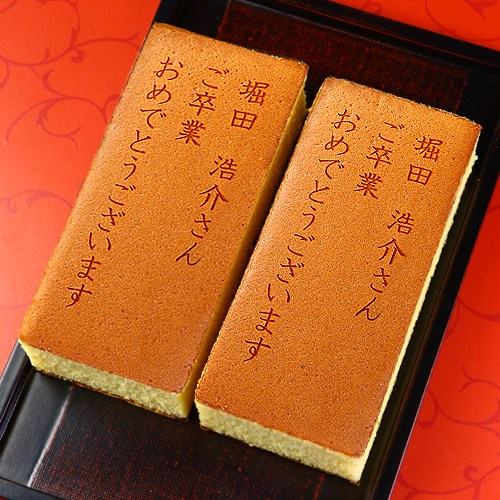 堀田 浩介さん
ご卒業
おめでとうございます
堀田 浩介さん
ご卒業
おめでとうございます